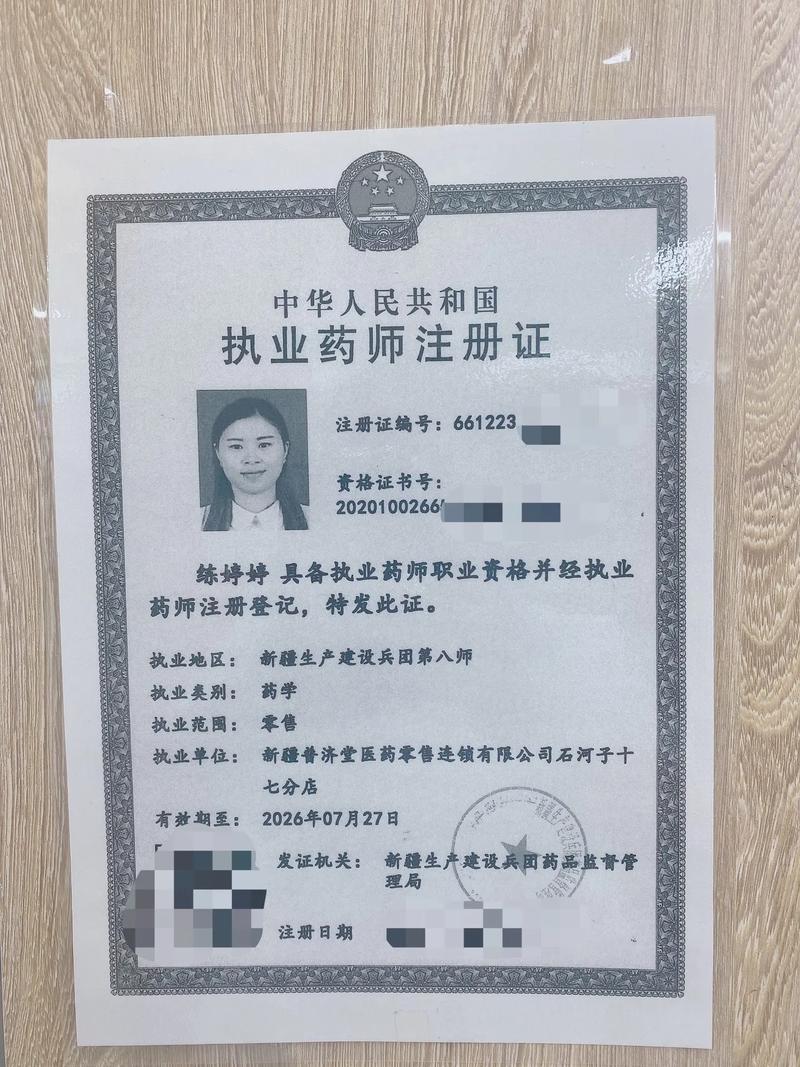 中华人民共和国
执业药师注册证
注册证编号：661223
资格证书号：
2020100266
练婷婷 具备执业药师职业资格并经执业
药师注册登记，特发此证。
执业地区：新疆生产建设兵团第八师
执业类别：药学
执业范围：零售
执业单位：新疆普济堂医药零售连锁有限公司石河子十
七分店
有效期至：2026年07月27日
发证机关：新疆生产建设兵团药品监督管
理局
注册日期